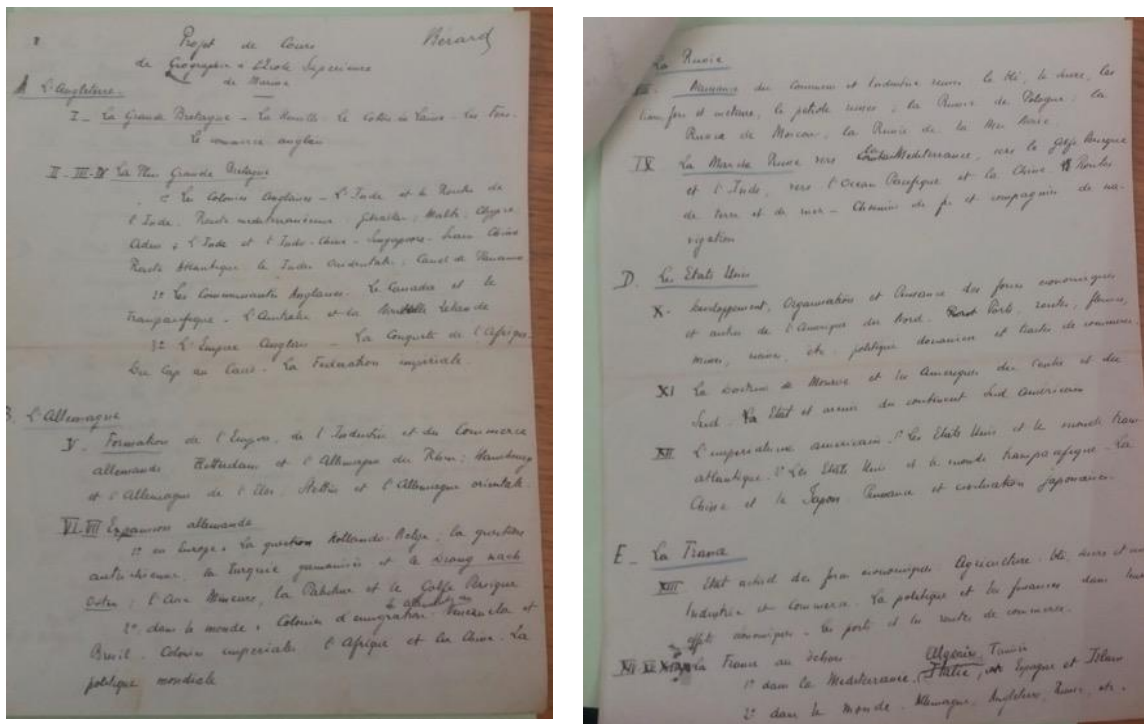 Projet de Cours
Bérard
de Géographie à l'Ecole Supérieure
de Marine
A L'Angleterre.
I _ La Grande Bretagne _ La Houille. Le Coton et Laine _ Les Fers.
Le commerce anglais
II _ III _ IV La Plus Grande Bretagne
1º Les Colonies Anglaises _ L'Inde et la Route de
l'Inde. Route méditerranéenne: Gibraltar, Malte, Chypre
Aden; L'Inde et l'Indo-Chine _ Singapoore _
Route Atlantique: les Indes Occidentales. Canal de Panama
2º Les Communautés Anglaises. Le Canada et le
Transpacifique. L'Australie et la Nouvelle Zélande
3º L'Empire Anglais _ La Conquête de l'Afrique.
Du Cap au Caire _ La Fédération impériale.
B. L'Allemagne
V. Formation de l'Empire, de l'Industrie et du Commerce
allemands. Rotterdam et l'Allemagne du Rhin; Hambourg
et l'Allemagne de l'Elbe; Stettin et l'Allemagne orientale.
VI _ VII Expansion allemande
1º en Europe. La question Hollando-Belge; la question
autrichienne, la Turquie germanisée et le Drang nach
Osten; l'Asie Mineure, la Palestine et le Golfe Persique
2º dans le monde. Colonies d'émigration. Venezuela et
Bresil. Colonies impériales: l'Afrique et la Chine. La
politique mondiale
La Russie
Naissance du Commerce et Industrie russes: le blé, le sucre, les
fers et métaux, le pétrole russes; la Russie de Pologne; la
Russie de Moscou; la Russie de la Mer Noire.
IX La Marche Russe vers la Méditerranée, vers le Golfe Persique
et l'Inde, vers l'Ocean Pacifique et la Chine. Routes
de terre et de mer _ Chemins de fer et compagnies de na-
vigation
D. Les Etats Unis
X. Développement, Organisation et Puissance des forces économiques
et autres de l'Amérique du Nord. Ports, routes, fleuves,
mines, usines, etc. politique douanière et traités de commerce.
XI La Doctrine de Monroe et les Amériques du Centre et du
Sud. Etat et avenir du continent Sud Américain
XII L'impérialisme américain. 1º Les Etats Unis et le monde trans-
atlantique. 2º Les Etats Unis et le monde transpacifique. La
Chine et le Japon. Puissance et civilisation japonaises.
E _ La France
XIII Etat actuel des forces économiques. Agriculture: blé, sucre et vin
Industrie et Commerce. La politique et les finances dans leurs
effets économiques. Les ports et les routes de commerce.
La France au dehors.
1º dans la Méditerranée. Algérie, Tunisie
Italie, Espagne et Islam
2º dans le monde. Allemagne, Angleterre, Russie, etc.